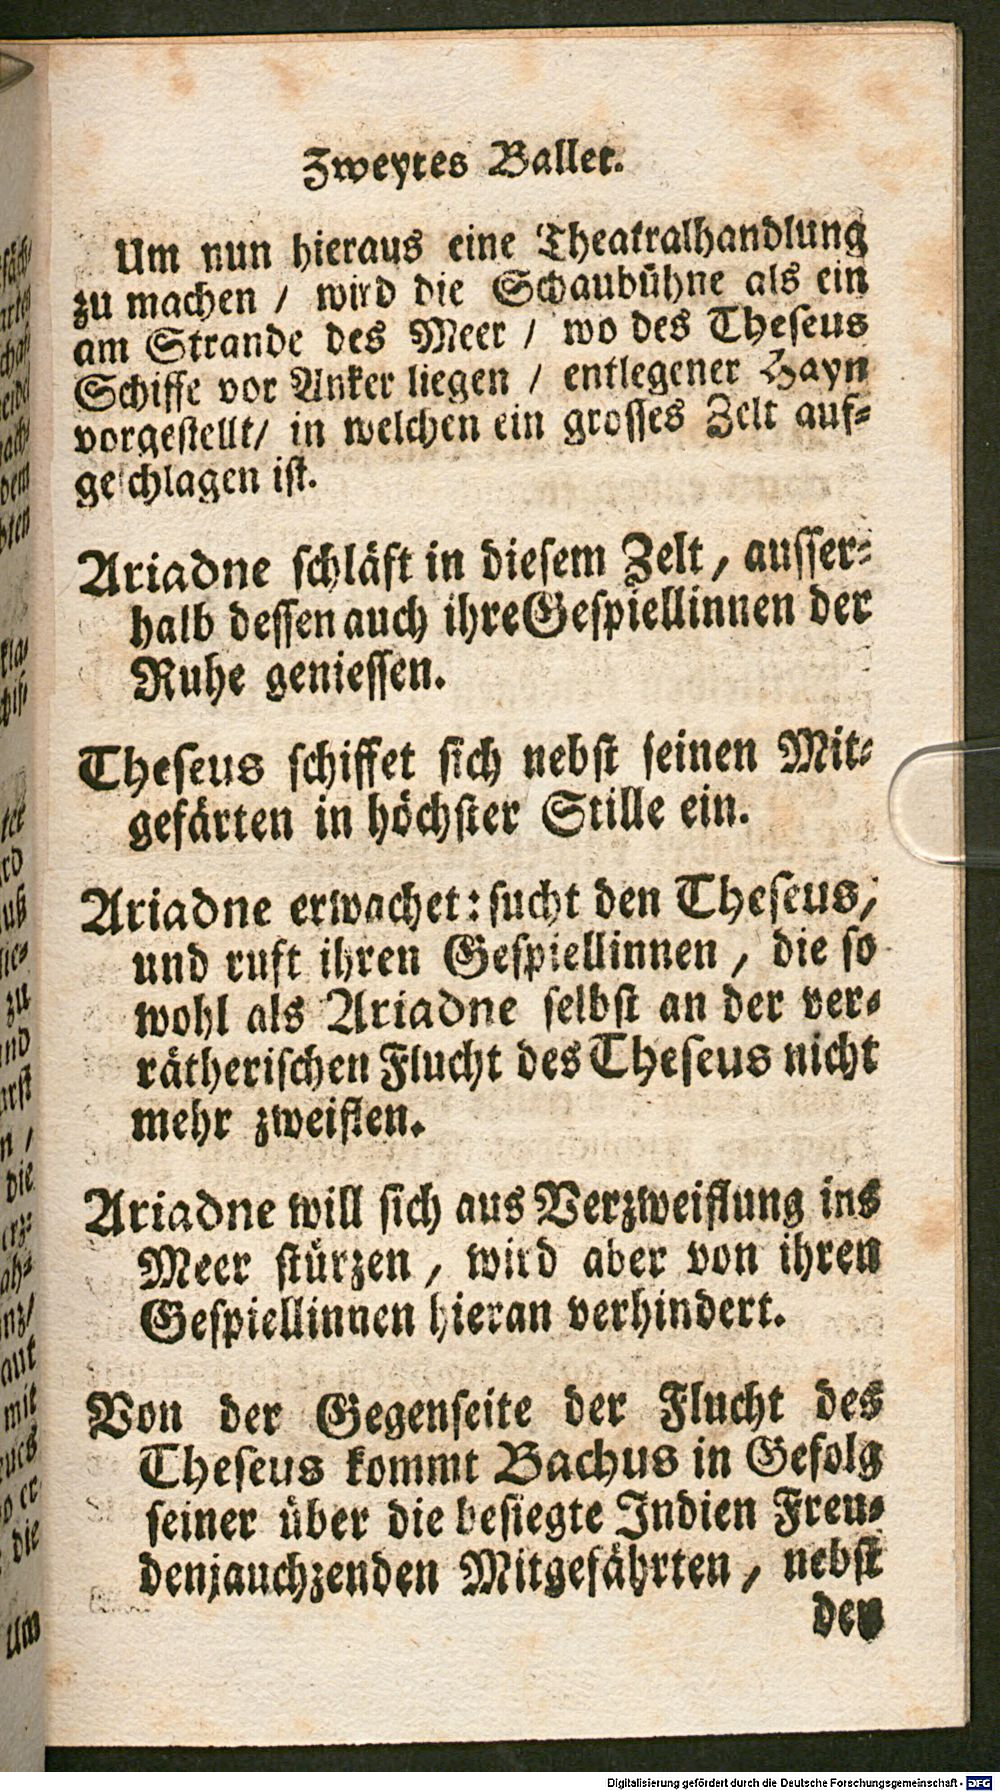 Zweytes Ballet.
Um nun hieraus eine Theatralhandlung
zu machen / wird die Schaubühne als ein
am Strande des Meer / wo des Theseus
Schiffe vor Anker liegen / entlegener Hayn
vorgestellt / in welchen ein grosses Zelt auf-
geschlagen ist.
Ariadne schläft in diesem Zelt, ausser-
halb dessen auch ihre Gespiellinnen der
Ruhe geniessen.
Theseus schiffet sich nebst seinen Mit-
gefärten in höchster Stille ein.
Ariadne erwachet: sucht den Theseus,
und ruft ihren Gespiellinnen, die so
wohl als Ariadne selbst an der ver-
rätherischen Flucht des Theseus nicht
mehr zweiflen.
Ariadne will sich aus Verzweiflung ins
Meer stürzen, wird aber von ihren
Gespiellinnen hieran verhindert.
Von der Gegenseite der Flucht des
Theseus kommt Bachus in Gefolg
seiner über die besiegte Indien Freu-
denjauchzenden Mitgefährten, nebst
den
Digitalisierung gefördert durch die Deutsche Forschungsgemeinschaft - DFG